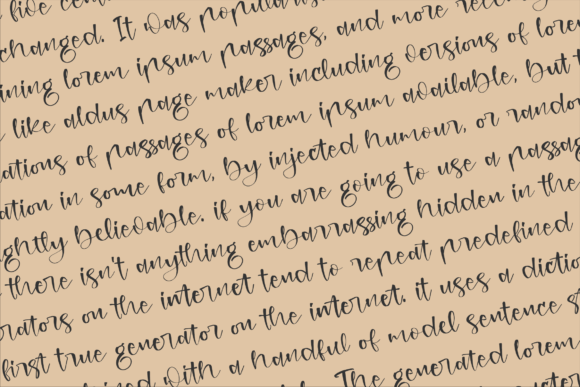 five
changed. It was popularis
ining lorem ipsum passages, and more recen
like aldus page maker including versions of lore
ations of passages of lorem ipsum available, but t
ation in some form, by injected humour, or rando
ghtly believable. if you are going to use a passag
there isn't anything embarrassing hidden in the
rators on the internet tend to repeat predefined
first true generator on the internet. it uses a dictio
ined with a handful of model sentence s
The generated lorem